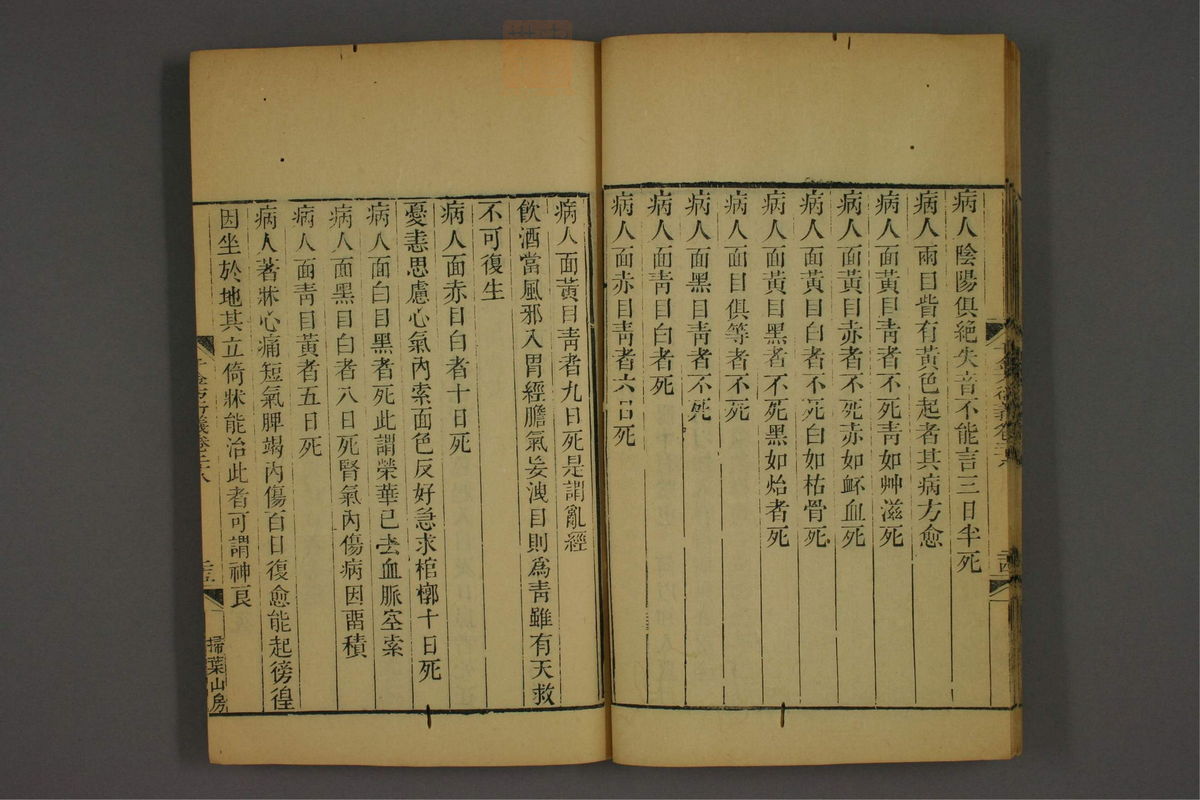 病人陰陽俱絕失音不能言三日半死
病人兩目眥有黃色起者其病方愈
病人面黃目靑者不死靑如艸滋死
病人面黃目赤者不死赤如衃血死
病人面黃目白者不死白如枯骨死
病人面黃目黑者不死黑如炲者死
病人面目俱等者不死
病人面黑目靑者不死
病人面靑目白者死
病人面赤目靑者六日死
病人面黃目靑者九日死是謂亂經
飮酒當風邪入胃經膽氣妄洩目則爲靑雖有天救
不可復生
病人面赤目白者十日死
憂恚思慮心氣內索面色反好急求棺槨十日死
病人面白目黑者死此謂榮華已去血脈空索
病人面黑目白者八日死腎氣內傷病因畱積
病人面靑目黃者五日死
病人著牀心痛短氣脾竭內傷百日復愈能起徬徨
因坐於地其立倚牀能治此者可謂神良
千金方衍義卷二十八
掃葉山房